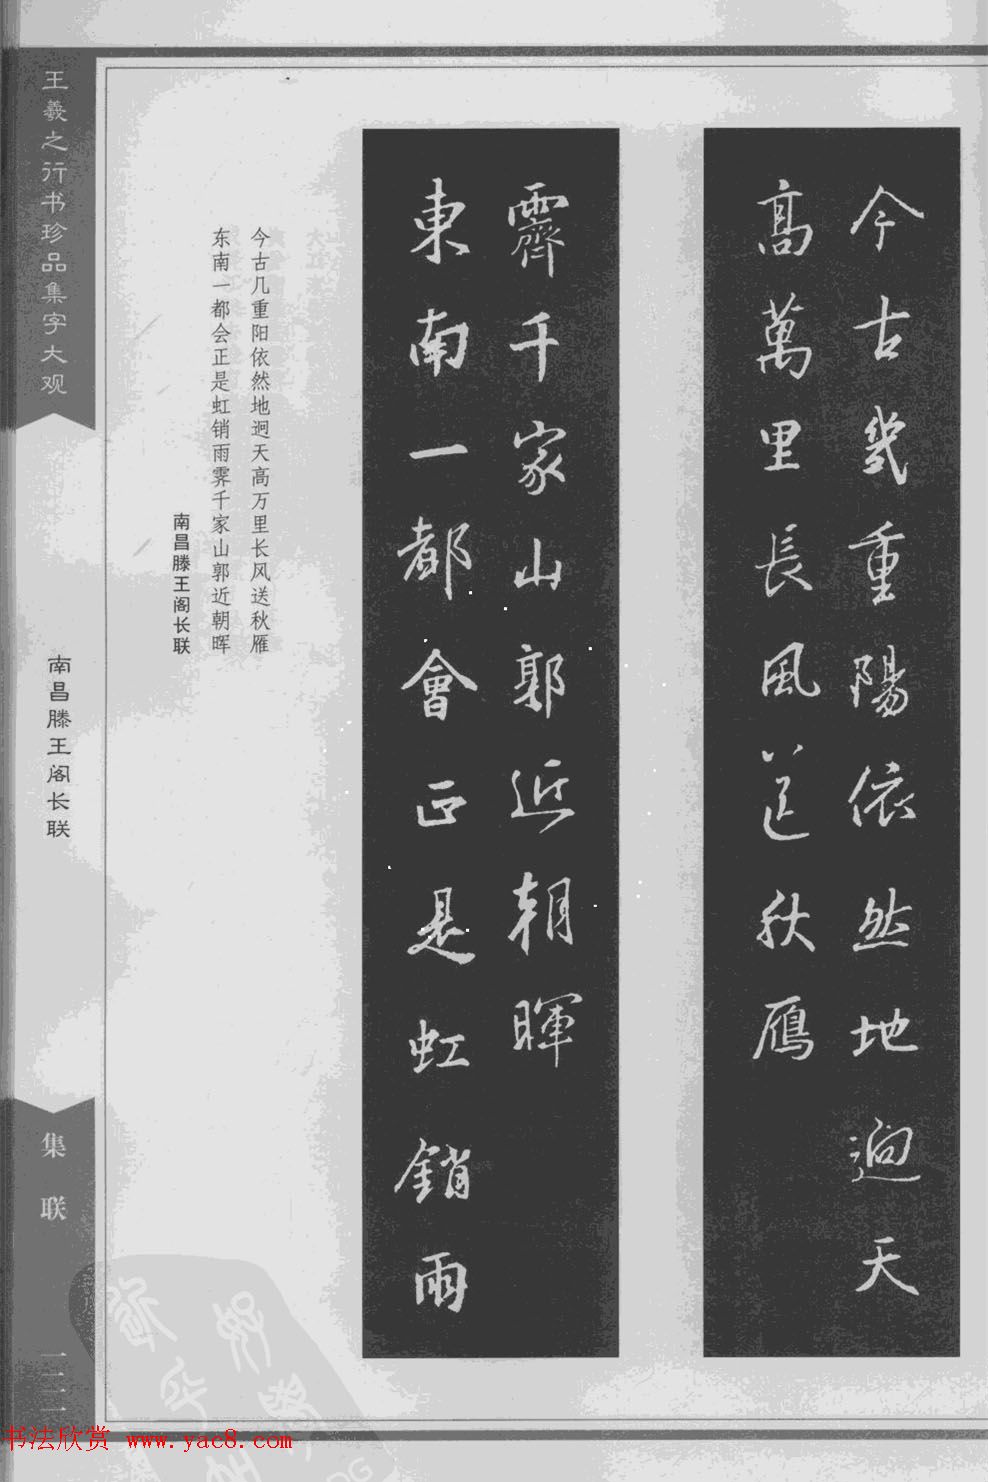 今古幾重陽依然地迥天
高萬里長風送秋雁
東南一都會正是虹銷雨
霽千家山郭近朝暉
今古几重阳依然地迥天高万里长风送秋雁
东南一都会正是虹销雨霁千家山郭近朝晖
南昌滕王阁长联
王羲之行书珍品集字大观
南昌滕王阁长联
集联
书法欣赏 www.yac8.com